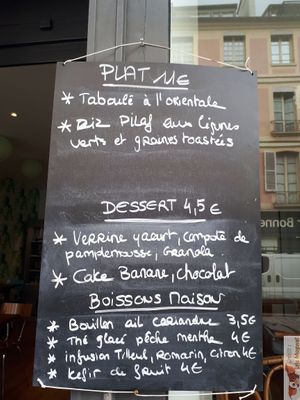 PLAT 11€
* Taboulé à l'orientale
* Riz Pilaf aux légumes
verts et graines toastées
DESSERT 4,5€
* Verrine yaourt, compote de
pamplemousse, Granola.
* Cake Banane, chocolat
BOISSONS MAISON
* Bouillon ail coriandre 3,5€
* Thé glacé pêche menthe 4€
* infusion Tilleul, Romarin, citron 4€
* Kefir de fruit 4€
Bonne